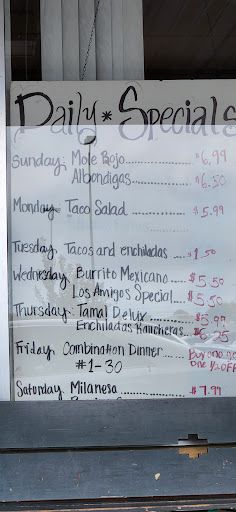 Daily * Specials
Sunday: Mole Rojo............ $6.99
Albondigas............ $6.50
Monday: Taco Salad ............ $5.99
Tuesday: Tacos and enchiladas .... $1.50
Wednesday: Burrito Mexicano..... $5.50
Los Amigos Special.... $5.50
Thursday: Tamal Delux ......... $5.99
Enchiladas Rancheras.. $6.25
Friday: Combination Dinner..... Buy one
#1-30 one ½ OFF
Saturday: Milanesa ............ $7.99